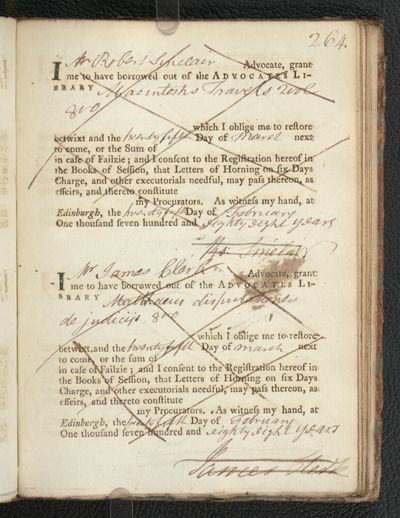 264.
I Mr Robert Sinclair Advocate, grant
me to have borrowed out of the ADVOCATES LI-
BRARY Macintoshs Travels 2 vols
8vo
which I oblige me to restore
betwixt and the twenty fifth Day of March next
to come, or the Sum of
in case of Failzie; and I consent to the Registration hereof in
the Books of Session, that Letters of Horning on six Days
Charge, and other executorials needful, may pass thereon, as
effeirs, and thereto constitute
my Procurators. As witness my hand, at
Edinburgh, the twenty fifth Day of February
One thousand seven hundred and eighty eight years
Ro: Sinclair
I Mr James Clerk Advocate, grant
me to have borrowed out of the ADVOCATES LI-
BRARY Matthaeus disputationes
de judiciis 8vo
which I oblige me to restore
betwixt and the twenty fifth Day of March next
to come, or the sum of
in case of Failzie; and I consent to the Registration hereof in
the Books of Session, that Letters of Horning on six Days
Charge, and other executorials needful, may pass thereon, as
effeirs, and thereto constitute
my Procurators. As witness my hand, at
Edinburgh, the twenty fifth Day of February
One thousand seven hundred and eighty eight years
James Clerk